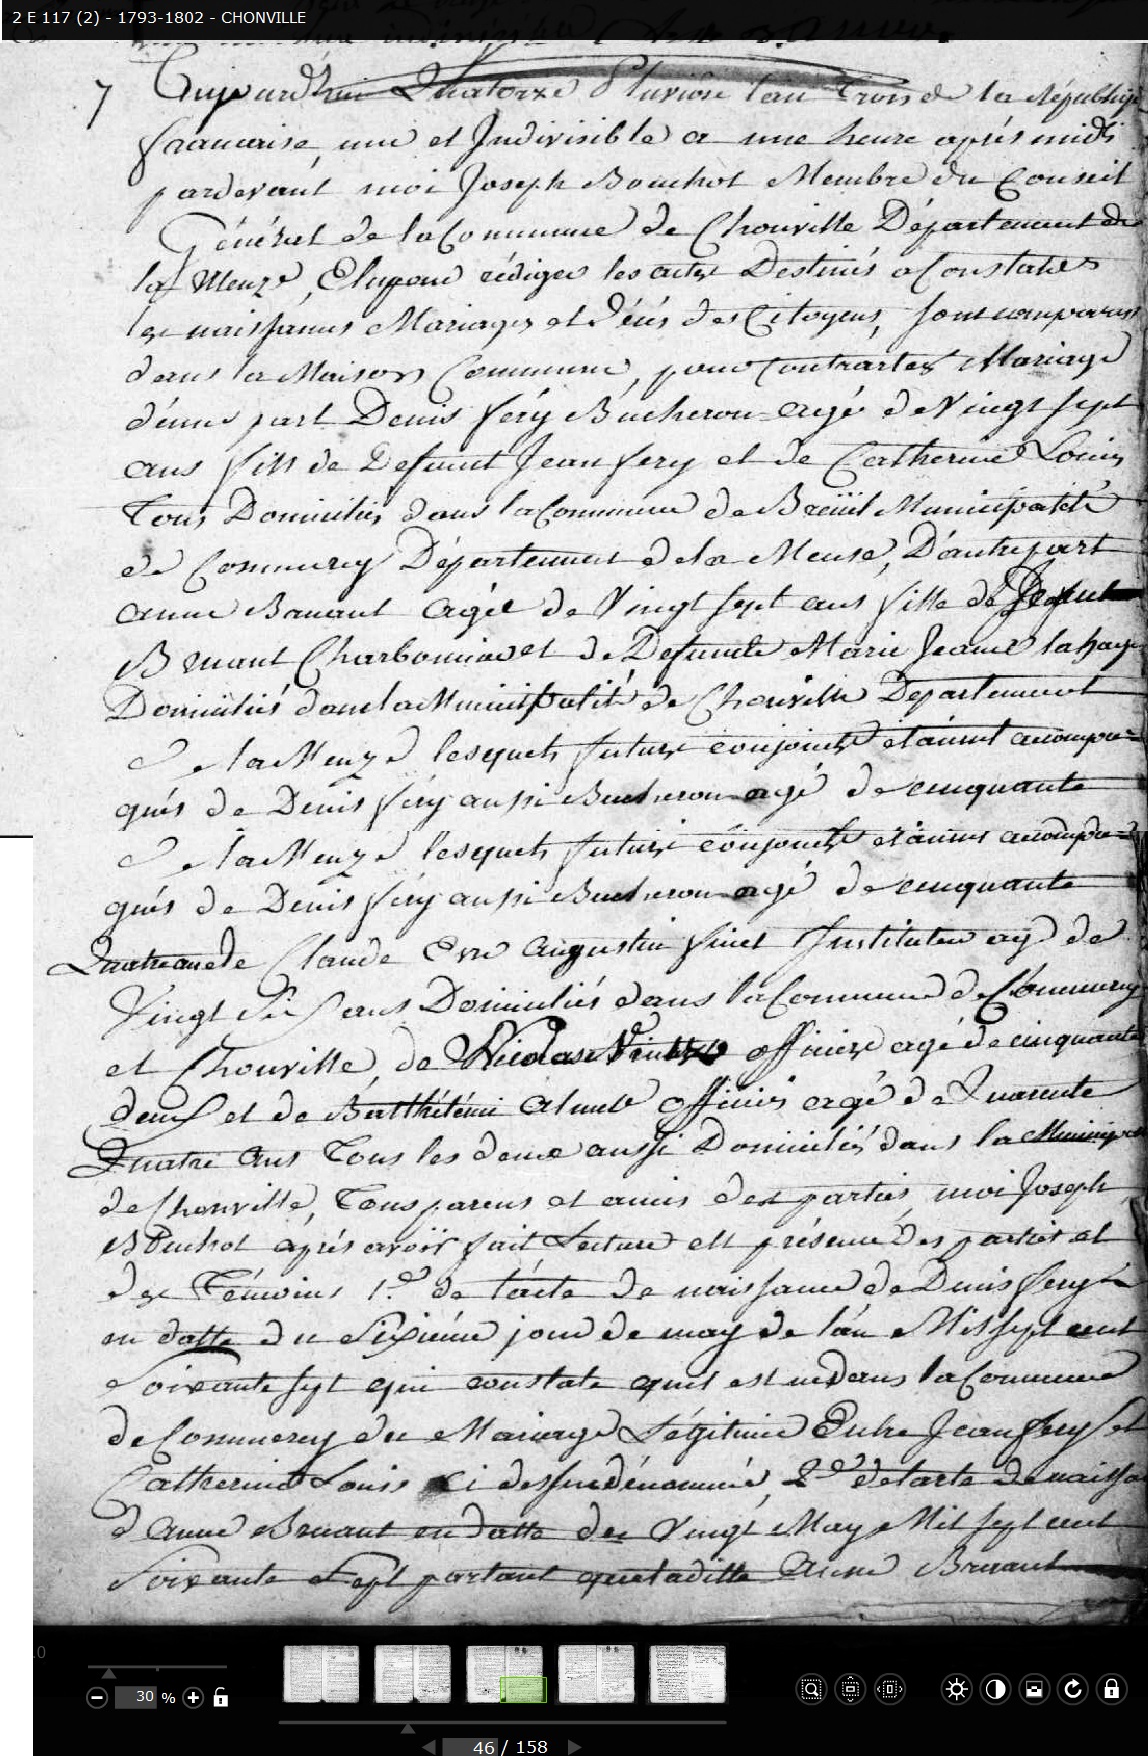 2 E 117 (2) - 1793-1802 - CHONVILLE
7 Aujourd'hui Quatorze Pluviôse l'an Trois de la République
francaise, une et Indivisible a une heure aprés midi
pardevant moi Joseph Bouchot Membre du Conseil
Général de la Commune de Chonville Département de
la Meuze, Elu pour rédiger les actes Destinés a Constater
les naissances Mariages et Décés des Citoyens, sont comparus
dans la Maison Commune, pour Contracter Mariage
d'une part Denis fery Bucheron agé de Vingt sept
ans fils de Defunt Jean fery et de Catherine Louis
Tous Domiciliés dans la Commune de Breüil Municipalité
de Commercy Département de la Meuse, D'autre part
anne Bruant agée de Vingt sept ans fille de
Bruant Charbonnier et de Defunte Marie Jeanne lahaye
Domiciliés dans la Municipalité de Chonville Departement
de la Meuze lesquels futurs conjoints étaient accompa=
gnés de Denis fery aussi Bucheron agé de cinquante
de la Meuze lesquels futurs conjoints étaient accompa=
gnés de Denis fery aussi Bucheron agé de cinquante
Quatre ans de Claude Evre augustin finet Instituteur agé de
Vingt Six ans Domiciliés dans la Commune de Commercy
et Chonville, de Nicolas officier agé de cinquante
deux et de Barthélémi officier agé de Quarente
Quatre ans Tous les deux aussi Domiciliés dans la
de Chonville, Tous parens et amis des parties, moi Joseph
Bouchot aprés avoir fait Lecture en présence Des parties et
des Témoins 1.º de l'acte de naissance de Denis fery
en datte du Sixiéme jour de may de l'an Mil sept cent
Soixante sept qui constate qu'il est né dans la Commune
de Commercy du Mariage Légitime Entre Jean fery et
Catherine Louis ci dessus dénommé, 2º de l'acte de naissa
d'anne Bruant en datte du Vingt May Mil sept cent
Soixante Sept portant que laditte Anne Bruant
30 %
46 / 158